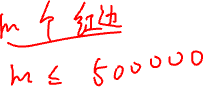 m 个 红边
m ≤ 500000